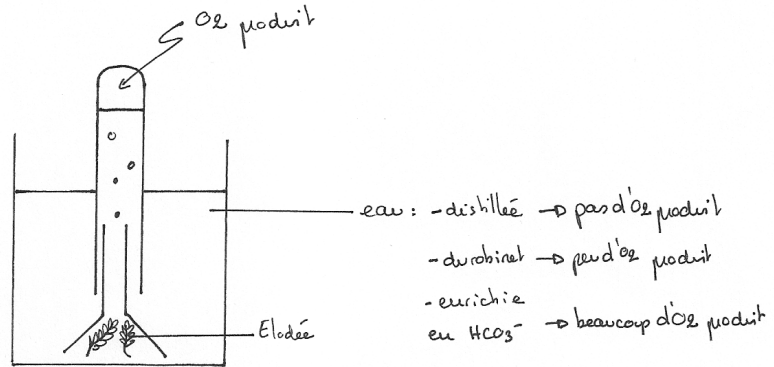 O2 produit
eau : - distillée → pas d'O2 produit
- du robinet → peu d'O2 produit
- enrichie
en HCO3⁻ → beaucoup d'O2 produit
Elodée